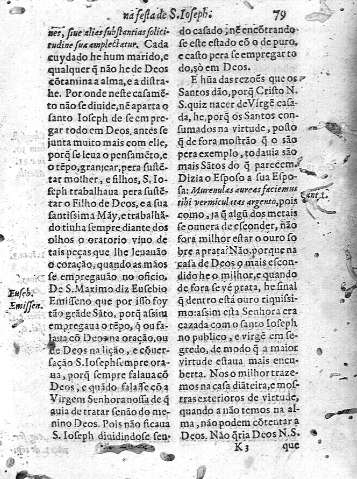 na festa de S. Ioseph. 79
nes, siue alias substantias solicitudine sua amplectatur. Cada
cuydado he hum marido, e
qualquer q̃ não he de Deos
cõtamina a alma, e a distra-
he. Por onde neste casamẽ-
to não se diuide, nẽ aparta o
santo Ioseph de se empre-
gar todo em Deos, antes se
junta muito mais com elle,
porq̃ se leua o pensamẽto, e
o tẽpo, grangear, pera sustẽ-
tar molher, e filhos, S. Io-
seph trabalhaua pera sustẽ-
tar o Filho de Deos, e a sua
santissima Mãy, e trabalhã-
do tinha sempre diante dos
olhos o oratorio viuo de
tais peças que lhe leuauão
o coração, quando as mãos
se empregauão no officio.
De S. Maximo diz Eusebio
Emisseno que por isso foy
tão grãde Sãto, porq̃ assim
empregaua o tẽpo, q̃ ou fa-
laua cõ Deos na oração, ou
de Deos na lição, e cõuer-
sação S. Ioseph sempre ora-
ua, porq̃ sempre falaua cõ
Deos, e quãdo falasse cõ a
Virgem Senhora nossa de q̃
auia de tratar senão do me-
nino Deos. Pois não ficaua
S. Ioseph diuidindose sen-
Euseb.
Emissen.
do casado, nẽ encontrando-
se este estado cõ o de puro,
e casto pera se empregar to-
do, só em Deos.
E hũa das rezoẽs que os
Santos dão, porq̃ Cristo N.
S. quiz nacer de Virgẽ casa-
da, he, porq̃ os Santos con-
sumados na virtude, posto
q̃ de fora mostrão q̃ o são
pera exemplo, todauia são
mais Sãtos do q̃ parecem.
Dizia o Esposo a sua Espo-
sa: Murenulas aureas faciemus
tibi vermiculatas argento, pois
como, ja q̃ algũ dos metais
se ouuera de esconder, não
fora milhor estar o ouro so-
bre a prata? Não, porque na
casa de Deos o mais escon-
dido he o milhor, e quando
de fora se vẽ prata, he sinal
q̃ dentro está ouro riquissi-
mo: assim esta Senhora era
cazada com o santo Ioseph
no publico, e virgẽ em se-
gredo, de modo q̃ a maior
virtude estaua mais encu-
berta. Nos o milhor traze-
mos na casa diãteira, e mos-
tras exteriores de virtude,
quando a não temos na al-
ma, não podem cõtentar a
Deos. Não q̃ria Deos N. S.
Cant. 1.
K 3 que